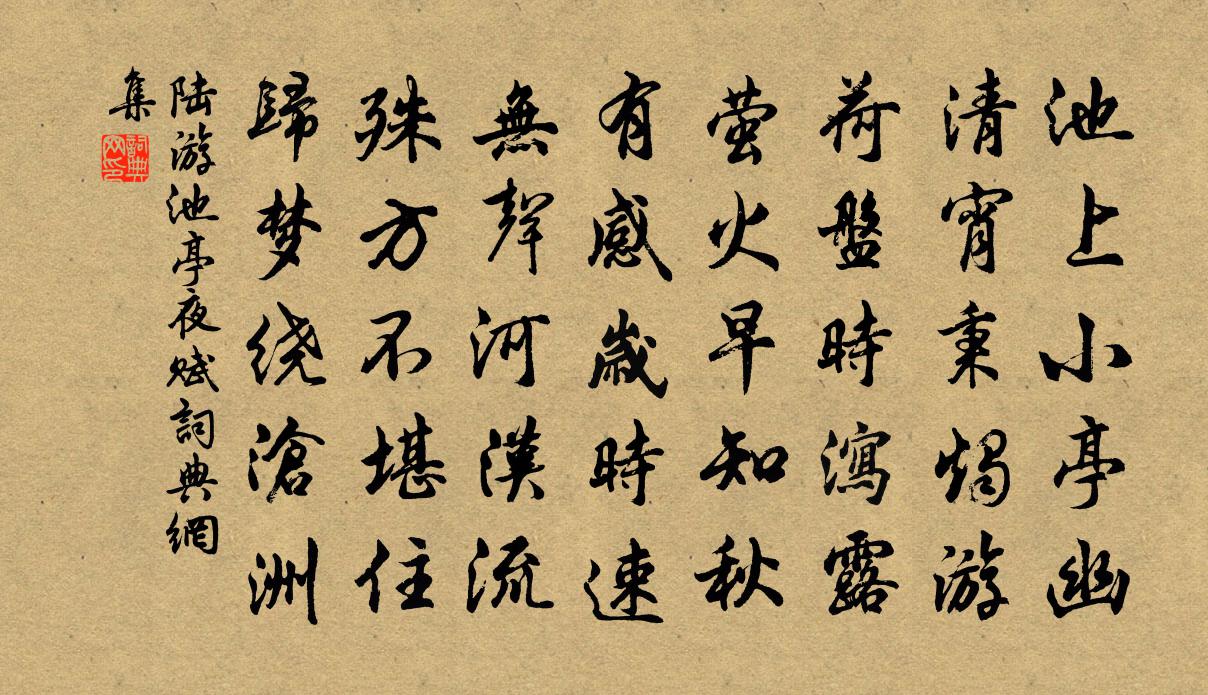 池上小亭幽
清宵秉燭游
荷盤時瀉露
萤火早知秋
有感歲時速
無聲河漢流
殊方不堪住
歸梦绕滄洲
陆游池亭夜赋詞典網
集
詞典网印